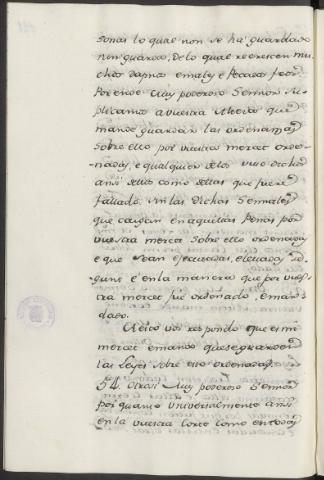 sonas lo qual non se ha guardado
non guarda, de lo qual recrescen mu
chos daños e males e Pecados
Porende Muy poderoso Sennor Su
plicamos a vuestra Alteza que
mande guardar las ordenanzas
sobre ello por vuestra merced orde
nadas, e qualquier de los
ansi dellos como dellas que fuere
fallado en las dichas Señales
que caygan en aquellas Penas por
vuestra merced sobre ello ordenadas
e que sean executadas, e levadas se
gunt e en la manera que por vues
tra merced fue ordenado, e manda
dado.
A esto vos respondo que es mi
merced e mando que se guarden
las Leyes sobre esto ordenadas
54. Otrosi Muy poderoso Sennor
por quanto universalmente ansi
en la vuestra Corte como en todas